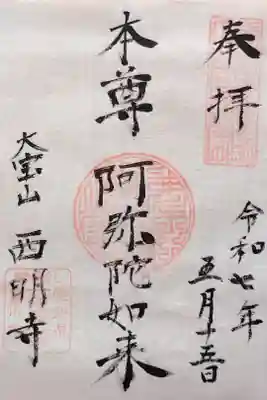 奉拝
令和七年
五月十五日
本尊
阿弥陀如来
大宝山 西明寺